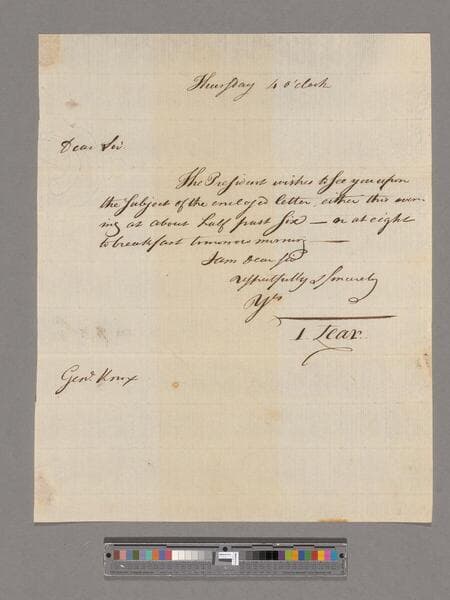 Thursday 4 o'clock
Dear Sir
The President wishes to see you upon
the subject of the enclosed letter, either this even-
ing at about half past six — or at eight
to breakfast tomorrow morning —
I am Dear Sir
respectfully & sincerely
Yrs
T Lear.
Genl. Knox